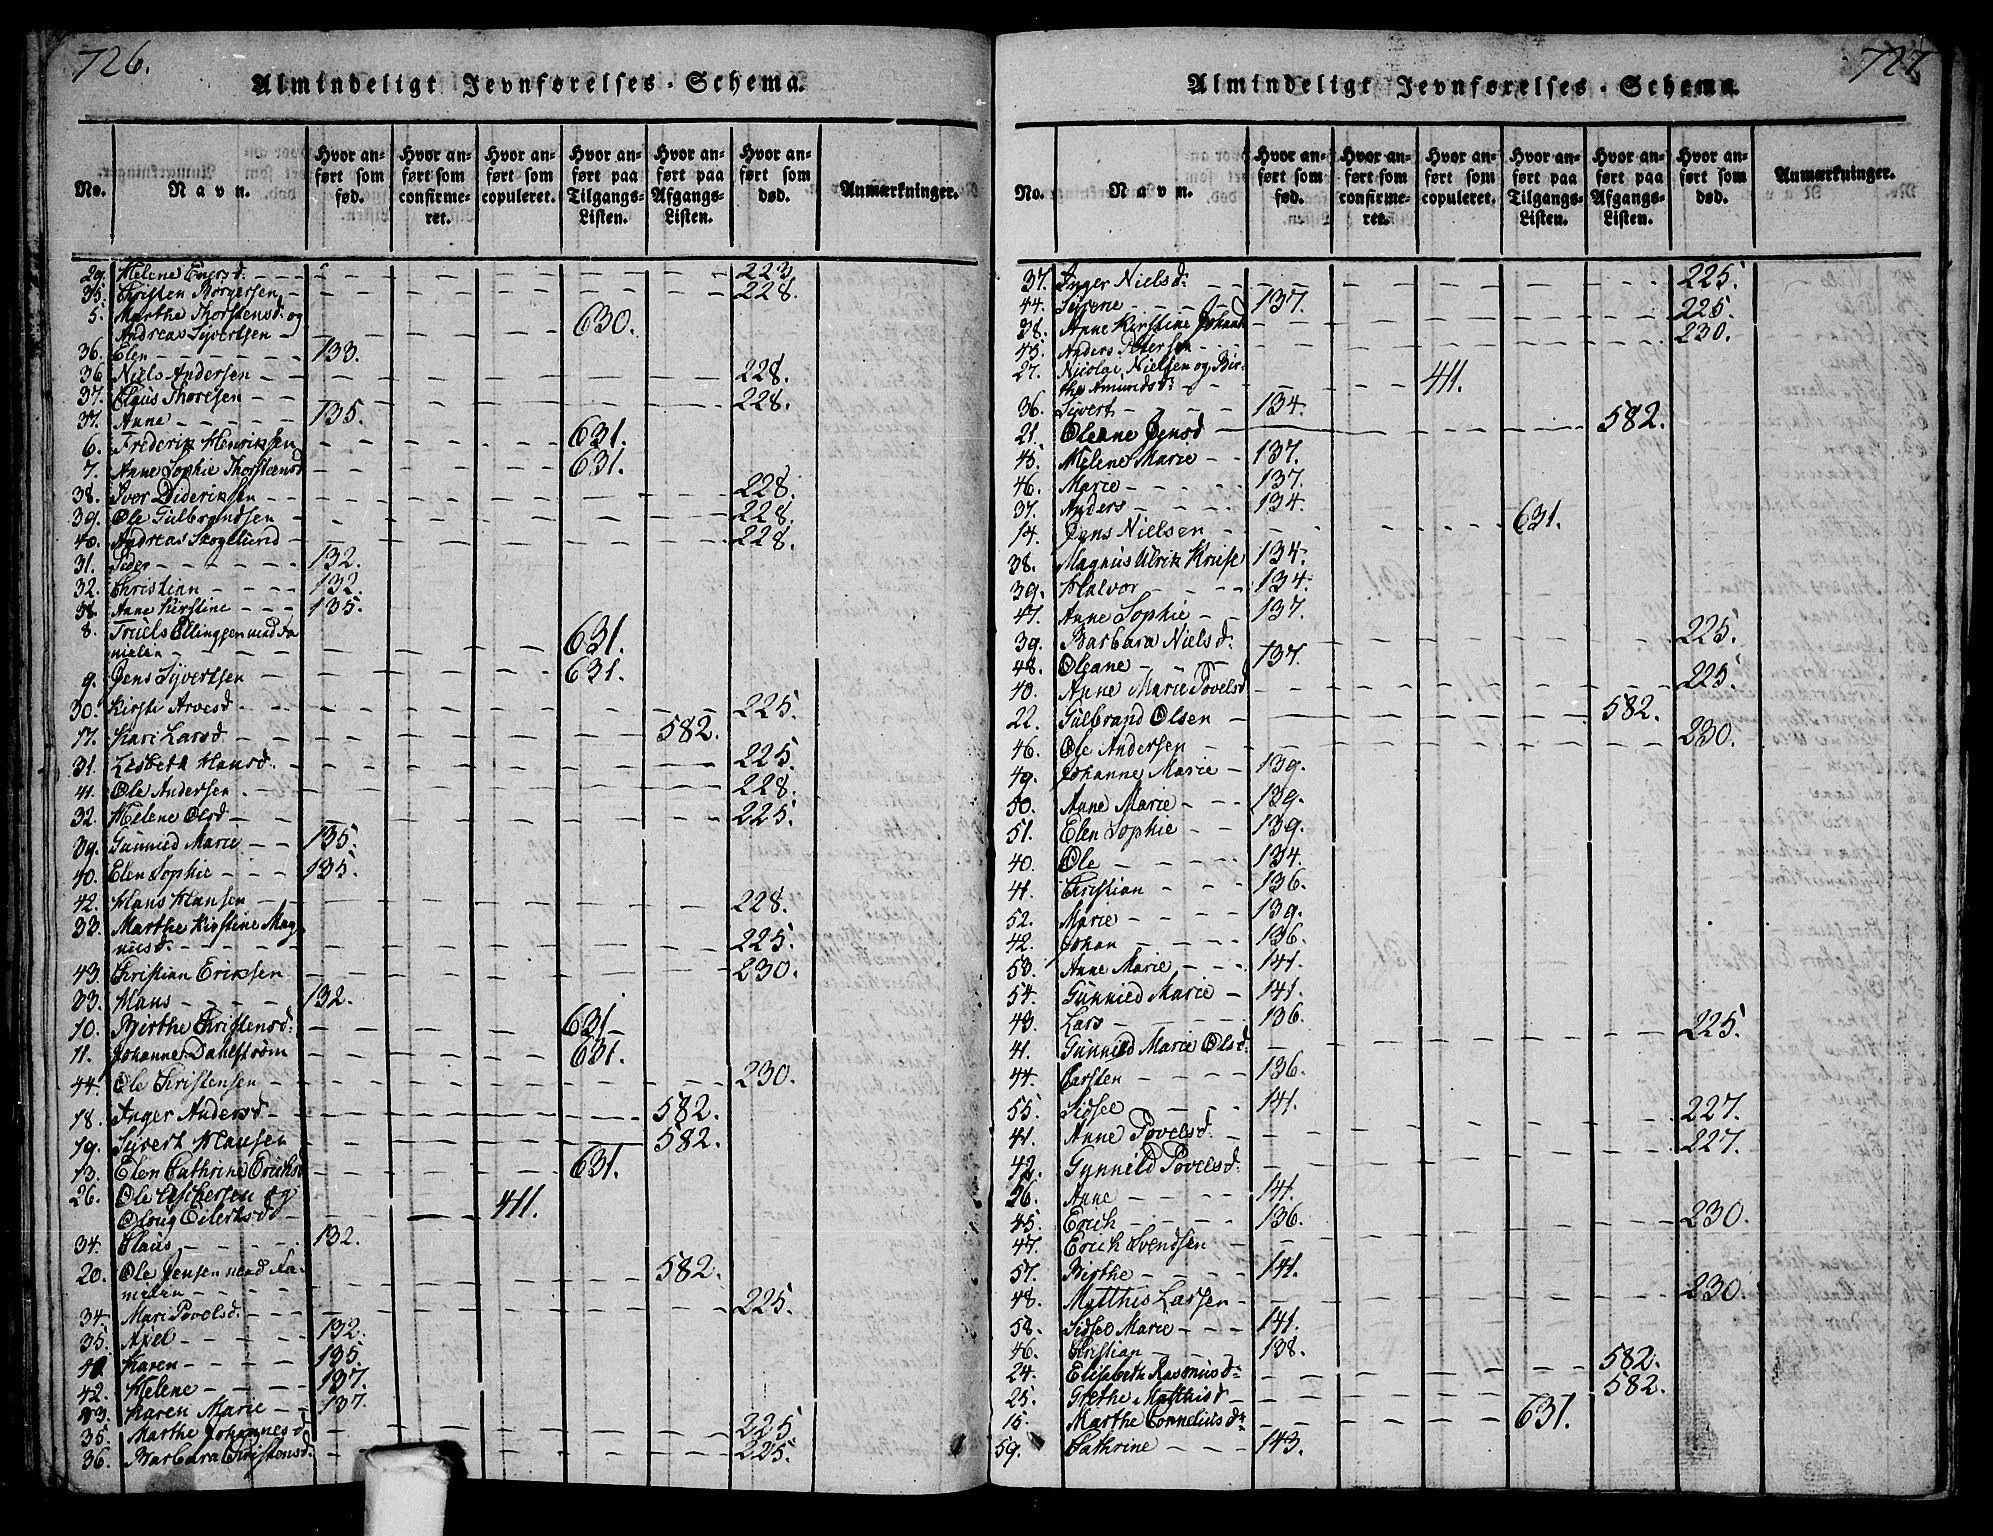 726.
Almindeligt Jevnførelses-Schema.
No. Navn. Hvor anført som fød. Hvor anført som confirmeret. Hvor anført som copuleret. Hvor anført paa Tilgangs-Listen. Hvor anført paa Afgangs-Listen. Hvor anført som død. Anmærkninger.
29. Helene Engersd. 223.
35. Christen Borgersen 228.
5. Marthe Thorstensd. og
Andreas Syvertsen 630.
36. Elen 133.
36 Niels Andersen 228.
37. Claus Thoresen 228.
37. Anne 135.
6. Frederik Henriksen 631.
7. Anne Sophie Thorstensd 631.
38. Iver Dideriksen 228.
39. Ole Gulbrandsen 228.
40. Andreas Skoglund 228.
31. Peder 132.
32. Christian 132.
38. Anne Kirstine 135.
8. Truels Ellingsen med Fa
milien 631.
9. Jens Syvertsen 631.
30. Kirsti Arvesd 225.
17. Kari Larsd 582.
31. Lisbeth Hansd. 225.
41. Ole Andersen 228.
32. Helene Olsd 225.
39. Gunnied Marie 135.
40. Elen Sophie 135.
42. Hans Hansen 228.
33. Marthe Kirstine Mag
nusd. 225.
43. Christian Eriksen 230.
33. Hans 132.
10. Birthe Christensd. 631.
11. Johanne Dahlstrøm 631.
44. Ole Christensen 230.
18. Inger Andersd 582.
19. Syvert Hansen 582.
13. Elen Cathrine Eriksd 631.
26. Ole Eschersen og
Oloug Eilertsd 411.
34. Claus 132.
20. Ole Jensen med Fa-
milien 582.
34. Mari Povelsd. 225.
35. Axel 132.
41. Karen 135.
42. Helene 137.
43. Karen Marie 137.
35. Marthe Johannesd 225.
36. Barbara Christensd. 225.
727
Almindeligt Jevnførelses-Schema.
No. Navn. Hvor anført som fød. Hvor anført som confirmeret. Hvor anført som copuleret. Hvor anført paa Tilgangs-Listen. Hvor anført paa Afgangs-Listen. Hvor anført som død. Anmærkninger.
37. Inger Nielsd. 225.
44. Severine 137.
38. Anne Kirstine Johansd 225.
45. Anders Petersen 230.
27. Nicolai Nielsen og Bir-
the Amundsd. 411.
36. Syvert 134.
21. Oleane Jensd 582.
45. Helene Marie 137.
46. Marie 137.
37. Anders 134.
14. Jens Nielsen 631.
38. Magnus Ulrik Kruse 134.
39. Halvor 134.
47. Anne Sophie 137.
39. Barbara Nielsd. 225.
48. Oleane 137.
40. Anne Marie Povelsd 225.
22. Gulbrand Olsen 582.
46. Ole Andersen 230.
49. Johanne Marie 139.
50. Anne Marie 139.
51. Elen Sophie 139.
40. Ole 134.
41. Christian 136.
52. Marie 139.
42. Johan 136.
53. Anne Marie 141.
54. Gunnied Marie 141.
43. Lars 136.
41. Gunnied Marie Olsd. 225.
44. Carsten 136.
55. Sidsel 141.
41. Anne Povelsd. 227.
42. Gynnild Povelsd. 227.
56. Anne 141.
45. Erich 136.
47. Erich Svendsen 230.
57. Birthe 141.
48. Matthis Larsen 230.
58. Sidsel Marie 141.
46. Christian 138.
24. Elisabeth Rasmusd. 582.
25. Grethe Matthisd 582.
15. Marthe Corneliusd. 631.
59. Cathrine 143.